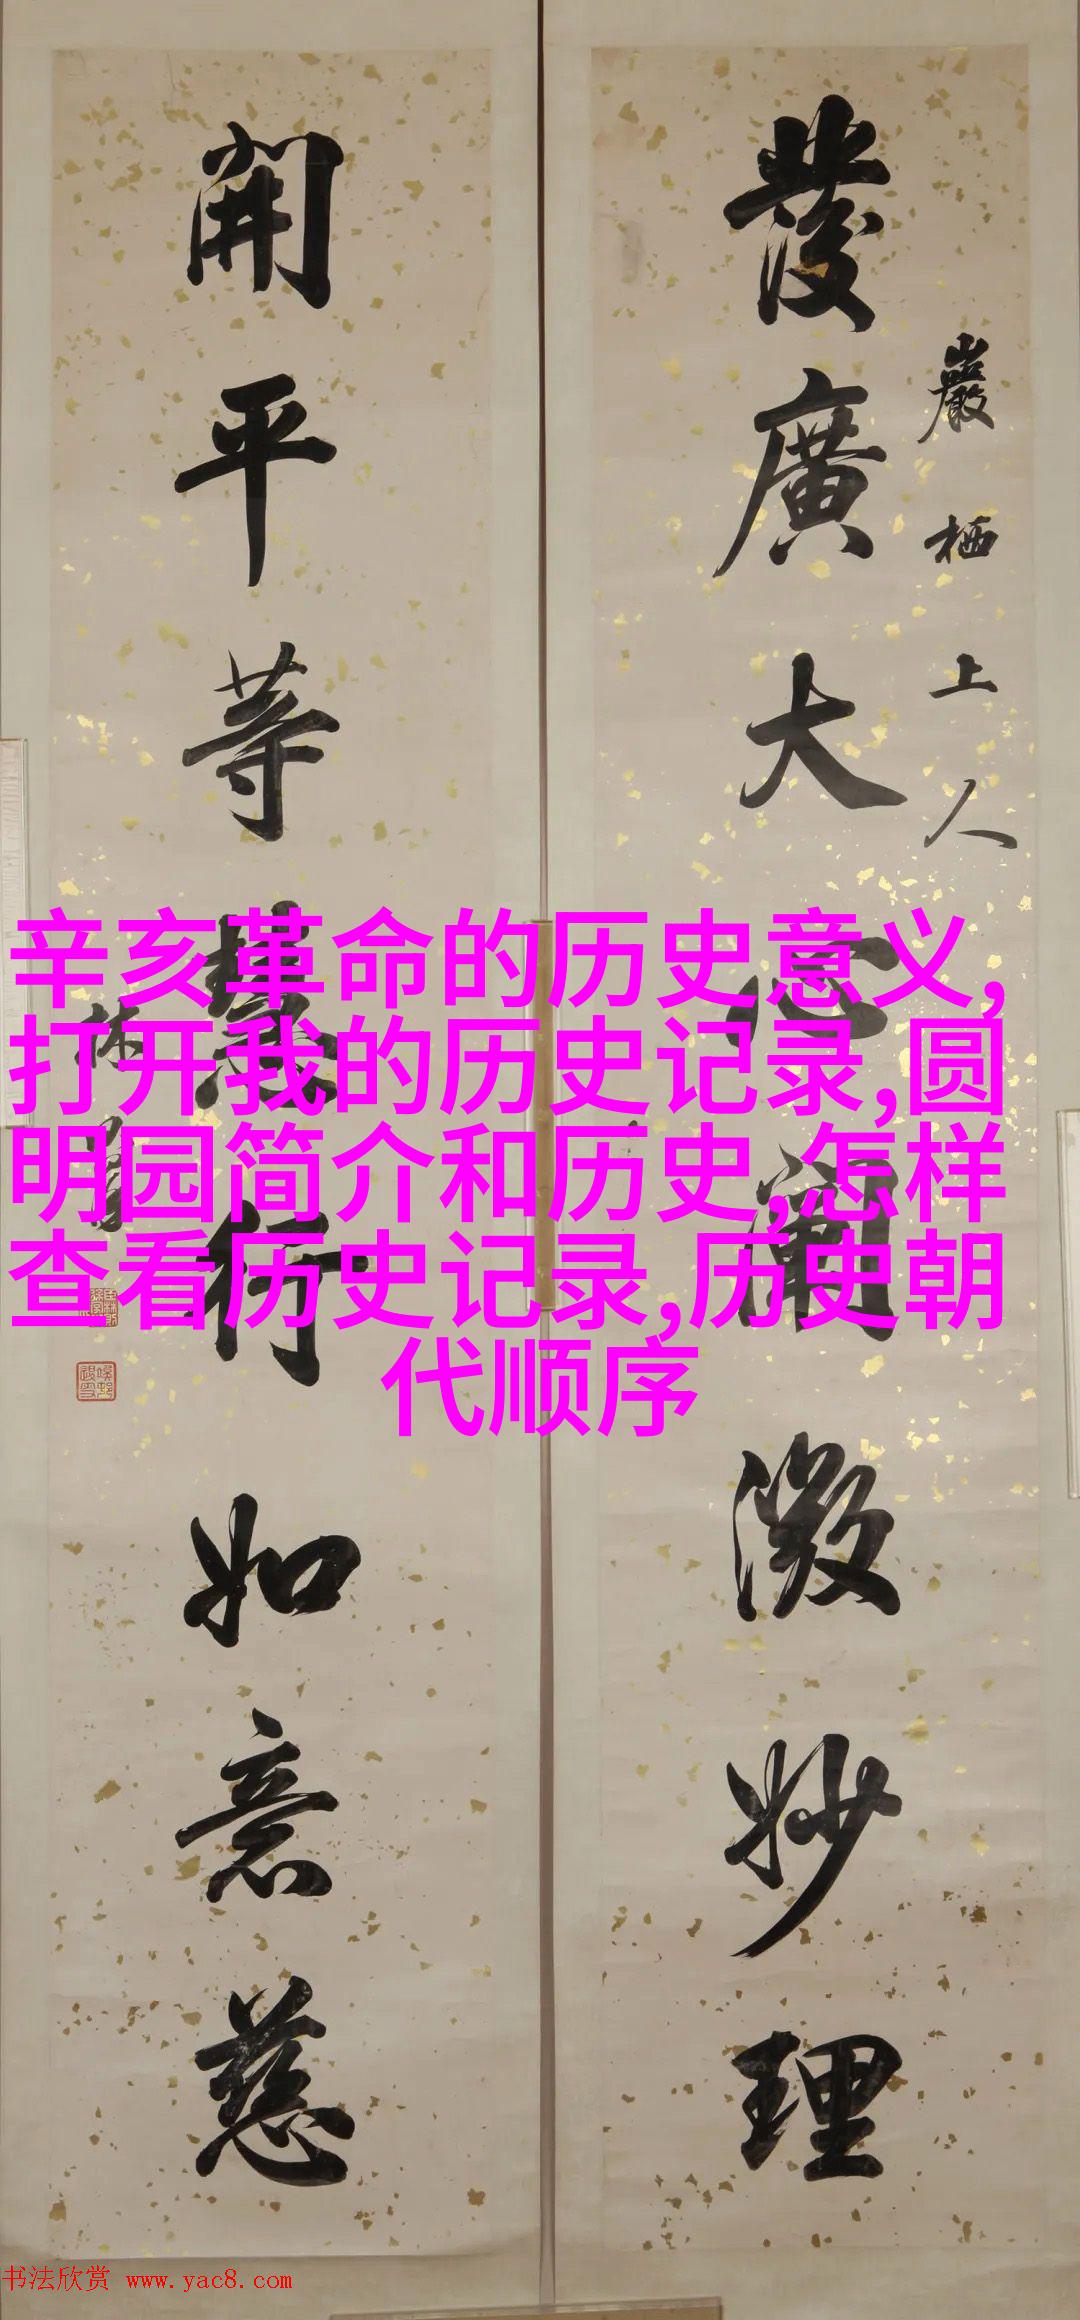 發廣大心闡微妙理
巖栖上人
開平等慧行如意慈
林
辛亥革命的历史意义,
打开我的历史记录,圆
明园简介和历史,怎样
查看历史记录,历史朝
代顺序
书法欣赏 www.yac8.com